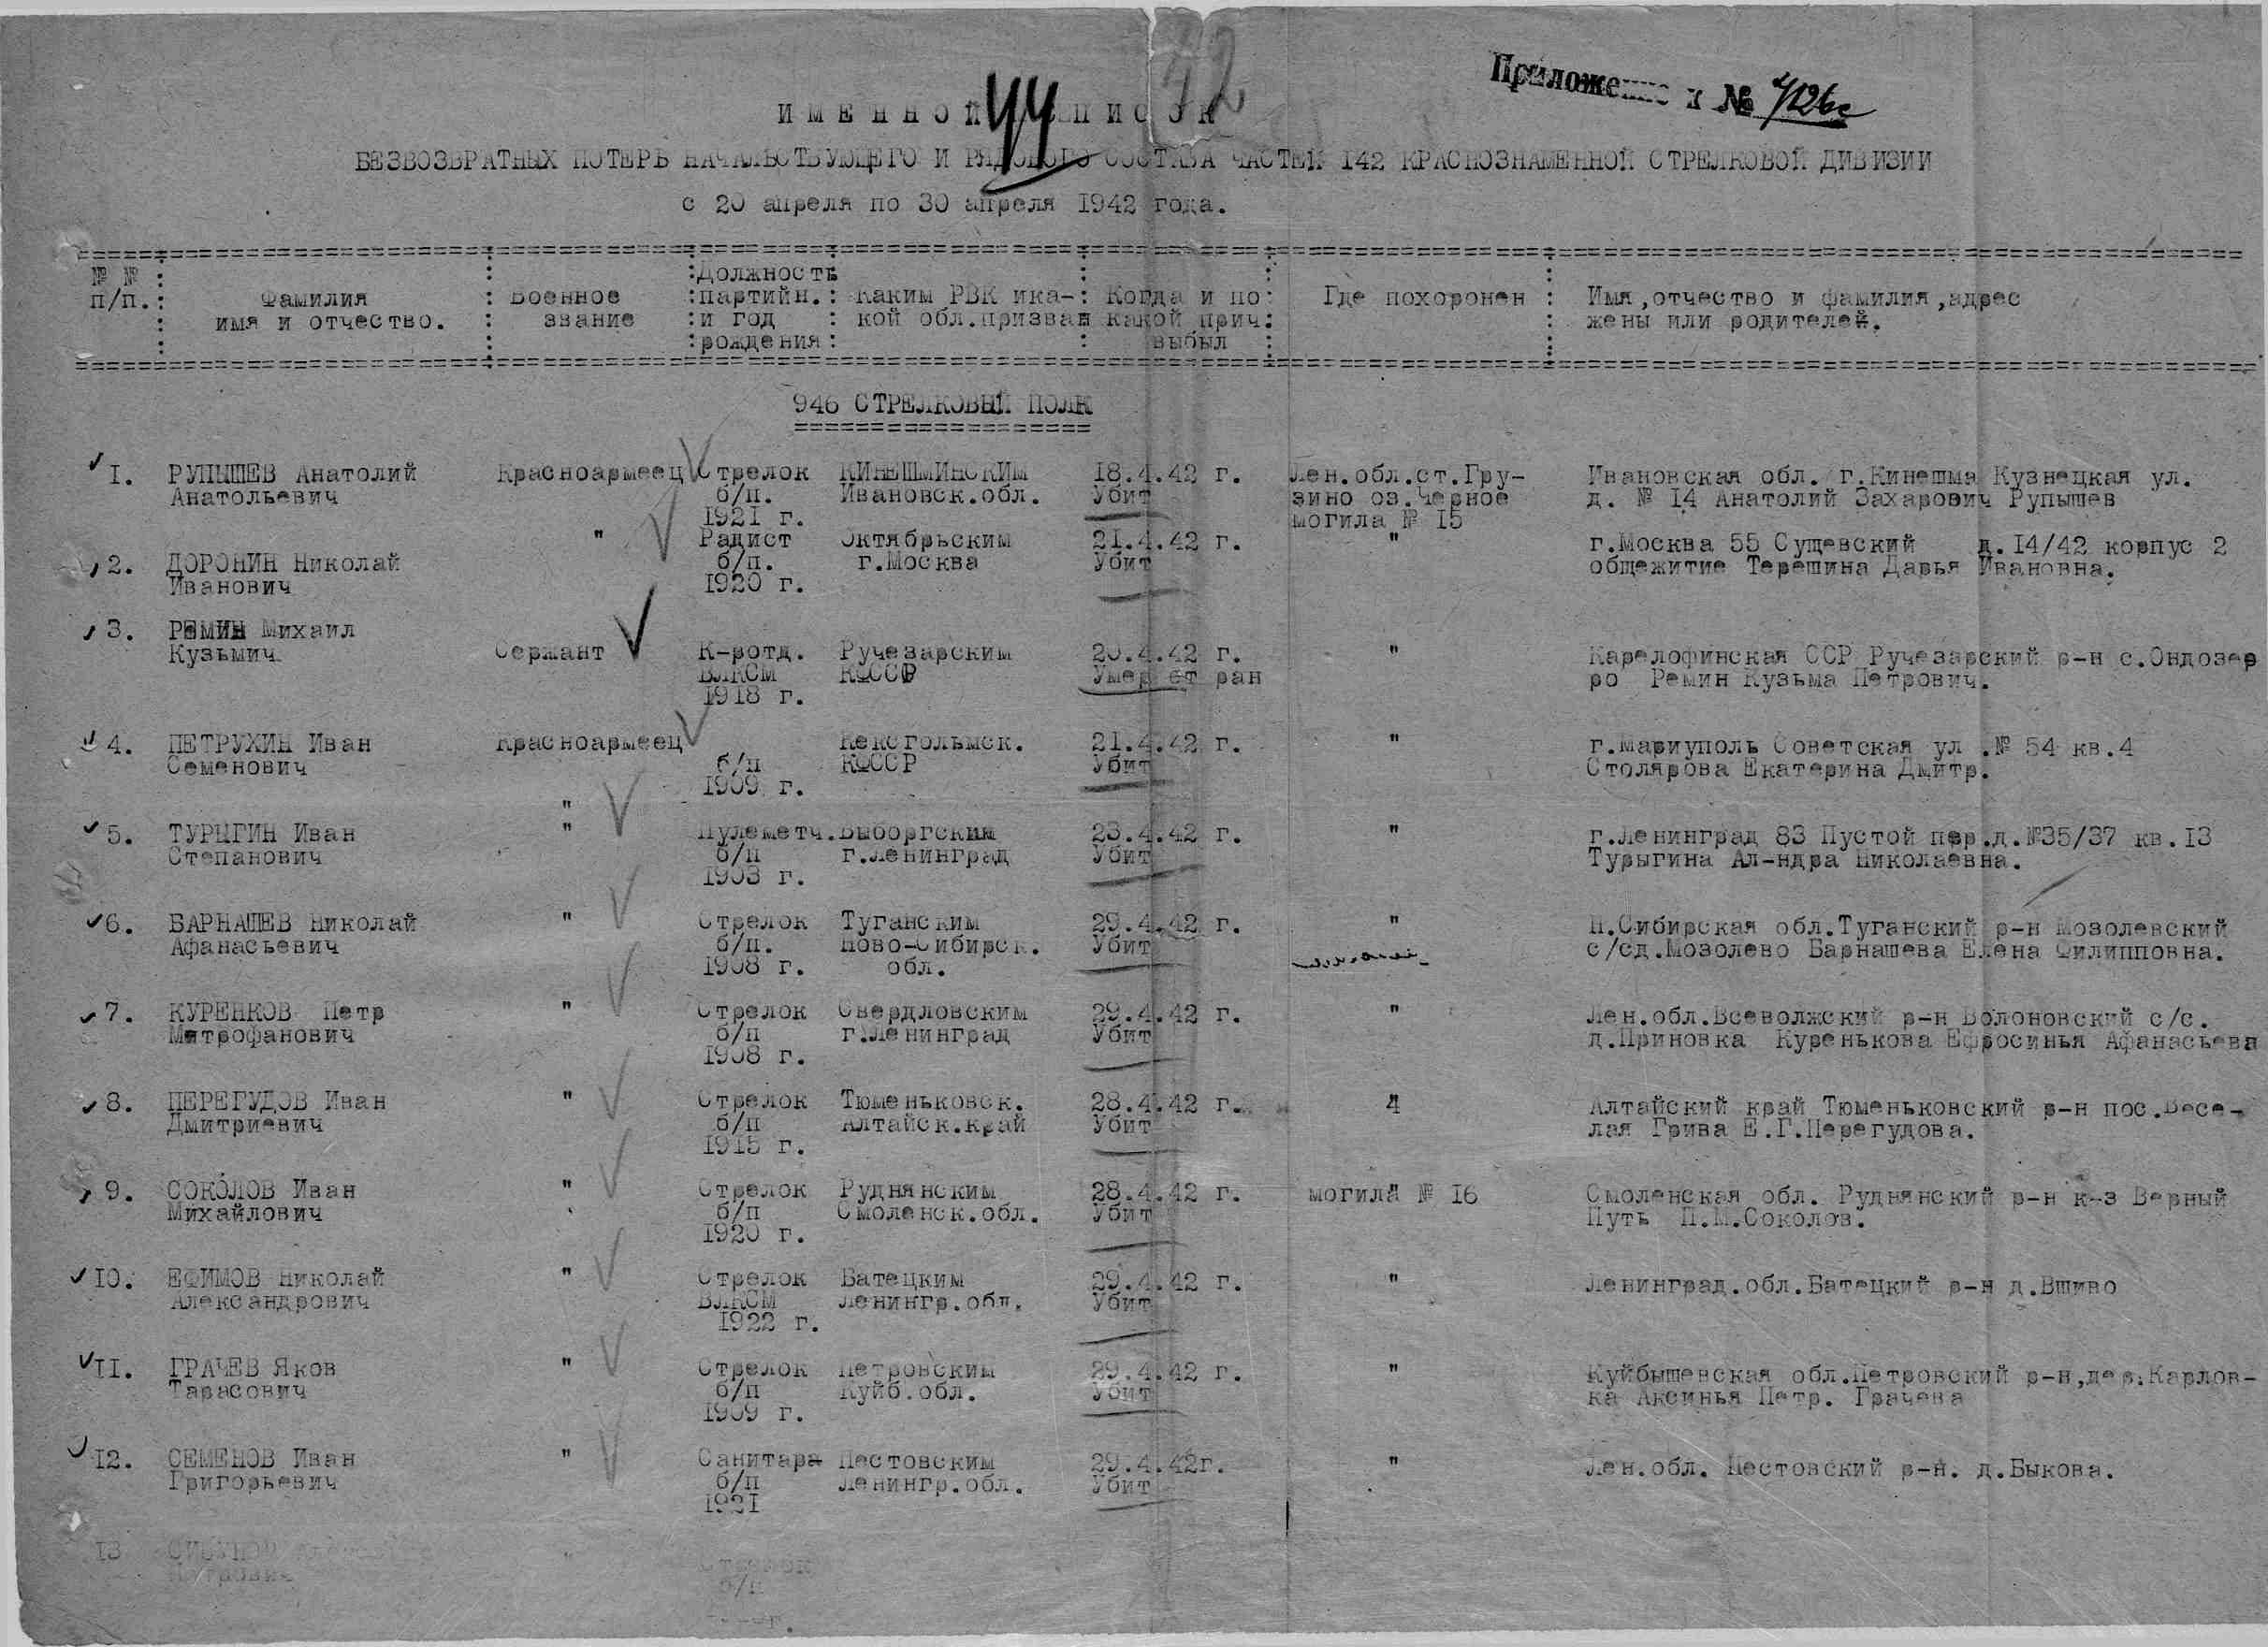 Приложение к № 4126с
44
42
ИМЕННОЙ СПИСОК
БЕЗВОЗВРАТНЫХ ПОТЕРЬ НАЧАЛЬСТВУЮЩЕГО И РЯДОВОГО СОСТАВА ЧАСТЕЙ 142 КРАСНОЗНАМЕННОЙ СТРЕЛКОВОЙ ДИВИЗИИ
с 20 апреля по 30 апреля 1942 года.
№ № п/п. : Фамилия имя и отчество. : Военное звание : Должность партийн. и год рождения : Каким РВК ика-кой обл.призван : Когда и по какой прич. выбыл : Где похоронен : Имя,отчество и фамилия,адрес жены или родителей.
946 СТРЕЛКОВЫЙ ПОЛК
I. РУПЫШЕВ Анатолий Красноармеец Стрелок КИНЕШМИНСКИМ 18.4.42 г. Лен.обл.ст.Гру- Ивановская обл. г.Кинешма Кузнецкая ул.
Анатольевич б/п. Ивановск.обл. Убит зино оз.Черное д. № I4 Анатолий Захарович Рупышев
I92I г. могила № I5
" Радист Октябрьским 21.4.42 г. " г.Москва 55 Сущевский д.I4/42 корпус 2
2. ДОРОНИН Николай б/п. г.Москва Убит общежитие Терешина Дарья Ивановна.
Иванович I920 г.
3. РЕМИН Михаил
Кузьмич Сержант К-ротд. Ручезарским 20.4.42 г. " Карелофинская ССР Ручезарский р-н с.Ондозер
ВЛКСМ КФССР Умер от ран ро Ремин Кузьма Петрович.
I918 г.
4. ПЕТРУХИН Иван Красноармеец Кексгольмск. 21.4.42 г. " г.Мариуполь Советская ул .№ 54 кв.4
Семенович б/п КФССР Убит Столярова Екатерина Дмитр.
I909 г.
"
5. ТУРЫГИН Иван " Пулеметч. Выборгским 23.4.42 г. " г.Ленинград 83 Пустой пер.д.№35/37 кв.I3
Степанович б/п г.Ленинград Убит Турыгина Ал-ндра Николаевна.
I903 г.
6. БАРНАШЕВ Николай " Стрелок Туганским 29.4.42 г. " Н.Сибирская обл.Туганский р-н Мозолевский
Афанасьевич б/п. Ново-Сибирск. Убит с/сд.Мозолево Барнашева Елена Филипповна.
I908 г. обл.
7. КУРЕНКОВ Петр " Стрелок Свердловским 29.4.42 г. " Лен.обл.Всеволжский р-н Волоновский с/с.
Митрофанович б/п г.Ленинград Убит д.Приновка Куренькова Ефросинья Афанасьева
I908 г.
8. ПЕРЕГУДОВ Иван " Стрелок Тюменьковск. 28.4.42 г. " Алтайский край Тюменьковский р-н пос.Весе-
Дмитриевич б/п Алтайск.край Убит лая Грива Е.Г.Перегудова.
I915 г.
9. СОКОЛОВ Иван " Стрелок Руднянским 28.4.42 г. могила № I6 Смоленская обл. Руднянский р-н к-з Верный
Михайлович б/п Смоленск.обл. Убит Путь П.М.Соколов.
I920 г.
I0. ЕФИМОВ Николай " Стрелок Батецким 29.4.42 г. " Ленинград.обл.Батецкий р-н д.Вшиво
Александрович ВЛКСМ Ленингр.обл. Убит
I922 г.
II. ГРАЧЕВ Яков " Стрелок Петровским 29.4.42 г. " Куйбышевская обл.Петровский р-н,дер.Карлов-
Тарасович б/п Куйб.обл. Убит ка Аксинья Петр. Грачева
I909 г.
I2. СЕМЕНОВ Иван " Санитара Пестовским 29.4.42г. " Лен.обл. Пестовский р-н. д.Быкова.
Григорьевич б/п Ленингр.обл. Убит
I92I
I3 Стрелок
Петрович б/п